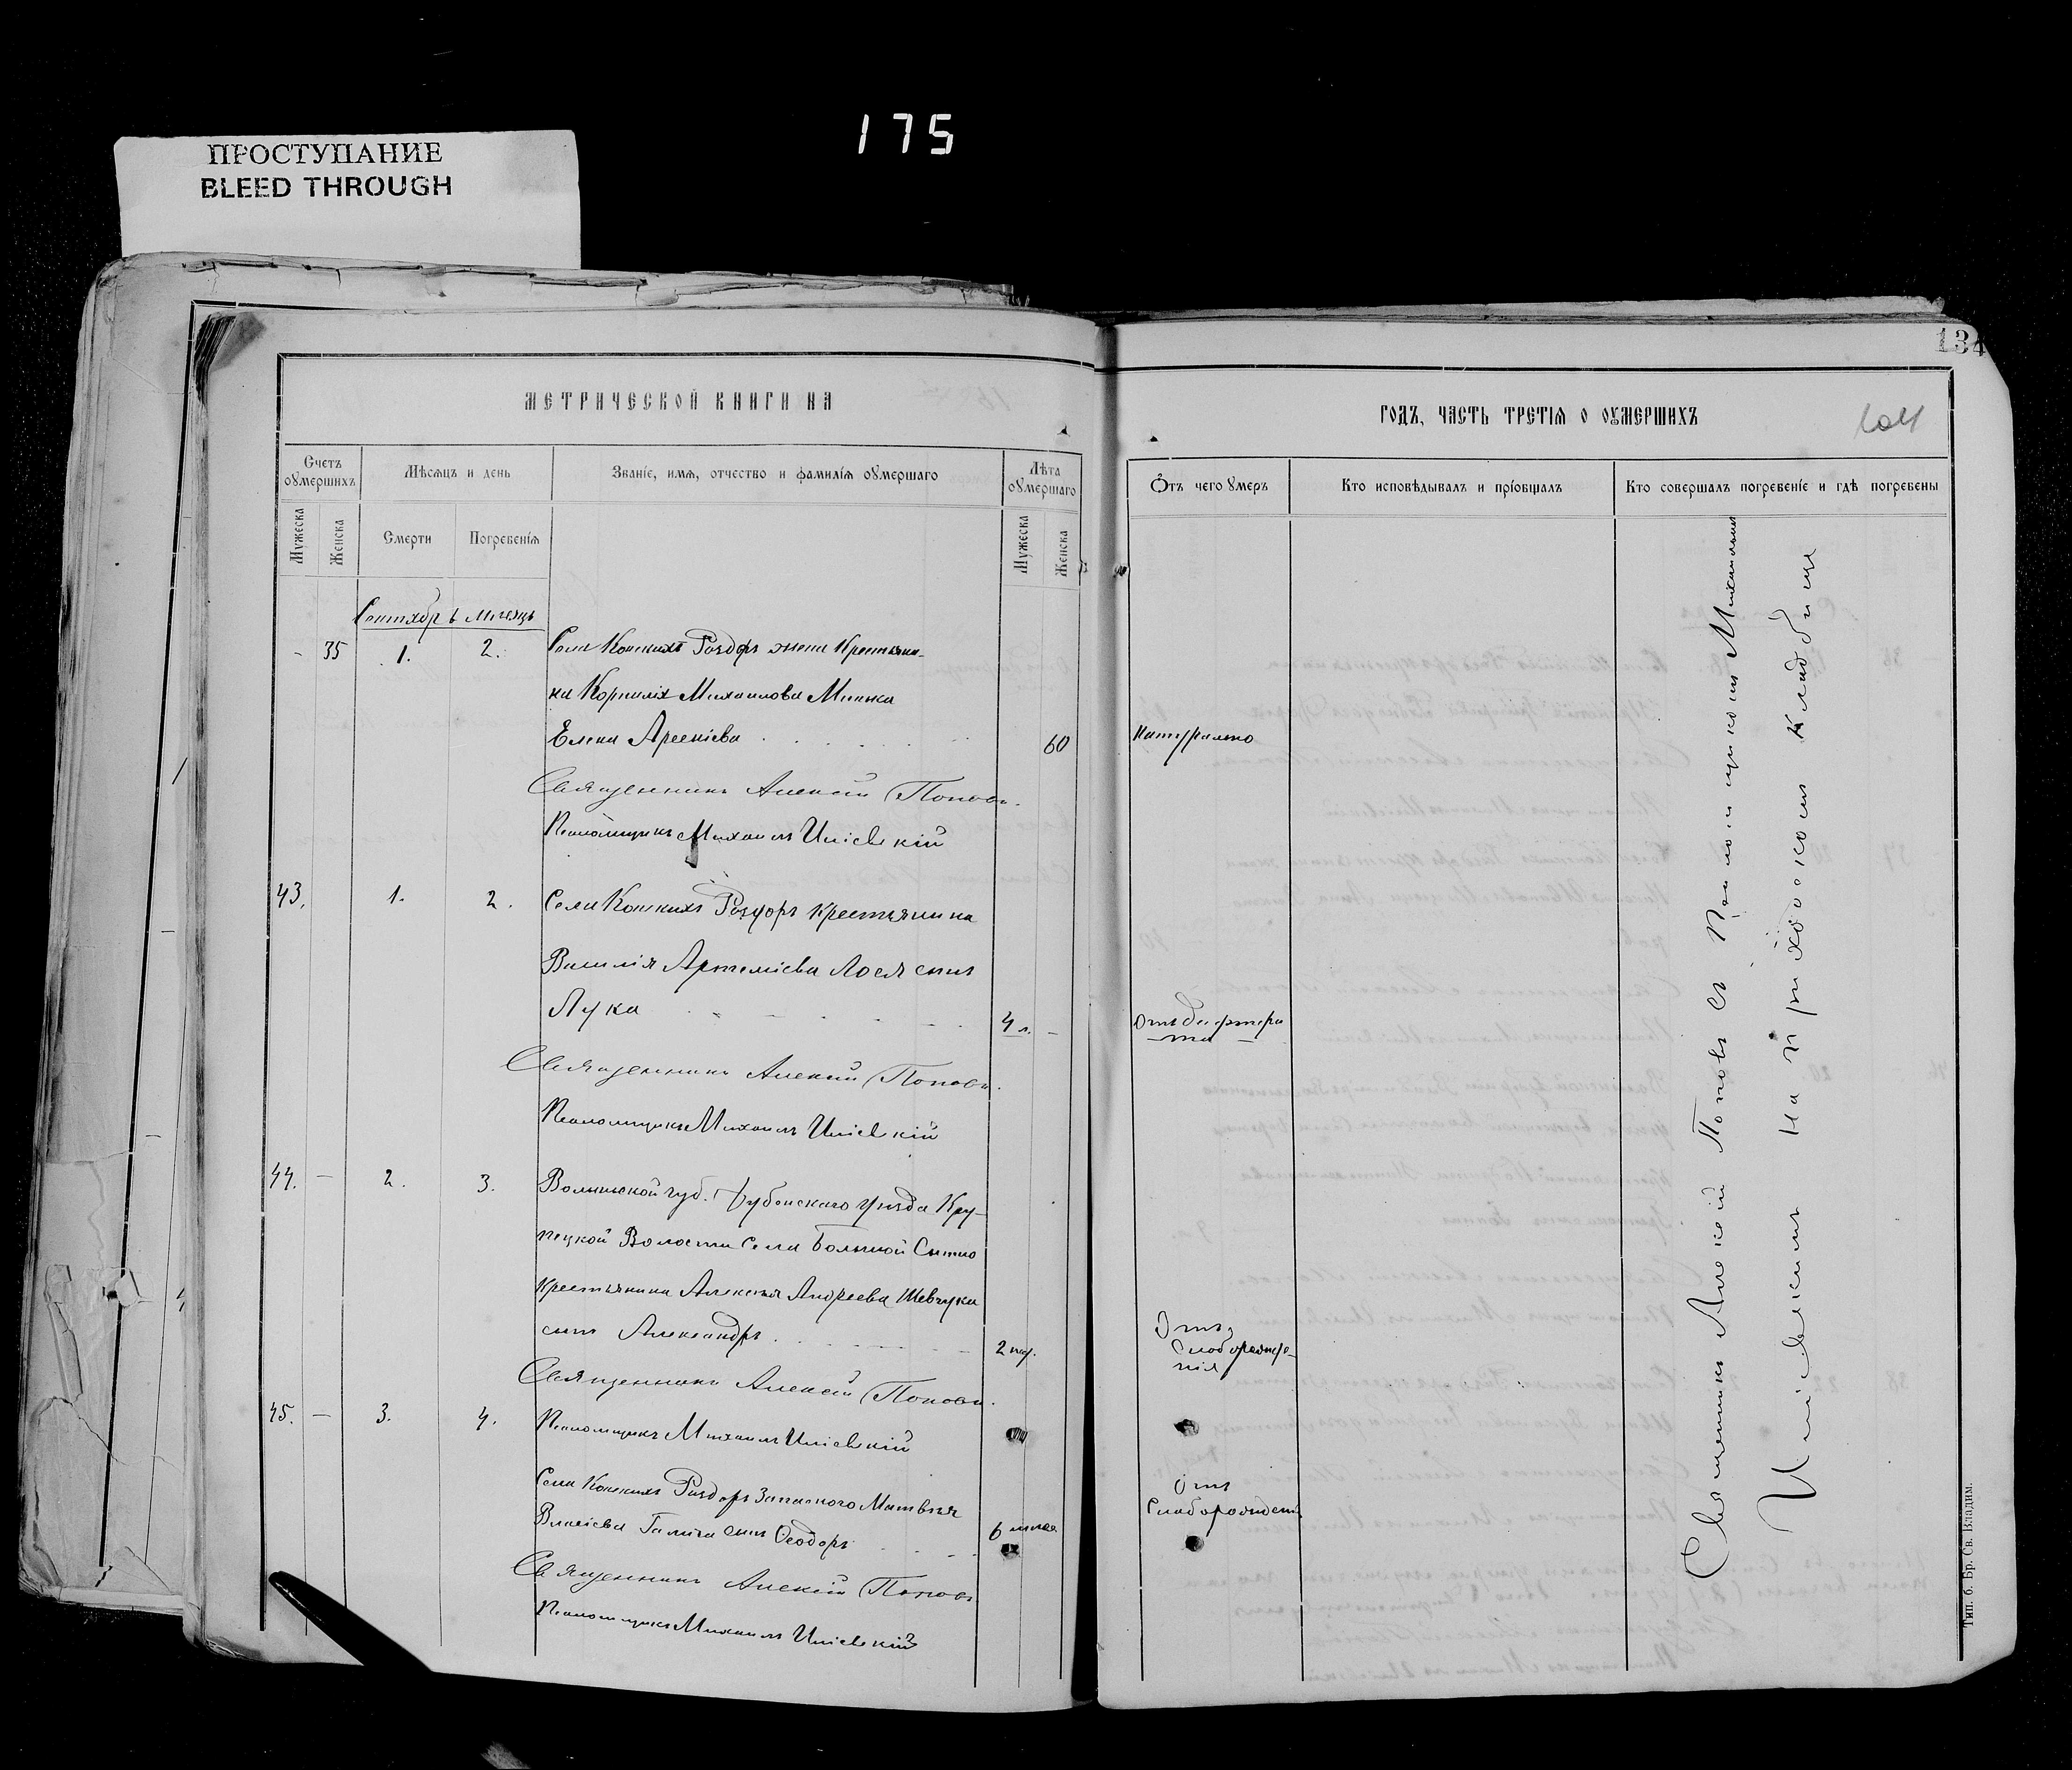 175
ПРОСТУПАНИЕ
BLEED THROUGH
134
МЕТРИЧЕСКОЙ КНИГИ НА
ГОДЪ, ЧАСТЬ ТРЕТІЯ О ОУМЕРШИХЪ
104
Счетъ оумершихъ
Мѣсяцъ и день
Званіе, имя, отчество и фамилія оумершаго
Лѣта оумершаго
Отъ чего умеръ
Кто исповѣдывалъ и пріобщалъ
Кто совершалъ погребеніе и гдѣ погребены
Мужеска
Женска
Смерти
Погребенія
Мужеска
Женска
Сентябрь мѣсяцъ
- 35 1. 2. Села Конскихъ Раздоръ жена Крестьяни-
на Корнилія Михаилова Минька
Елена Арсеніева 60 Натурально
Священникъ Алексій Поповъ.
Псаломщикъ Михаилъ Иліевскій
43. 1. 2. Села Конскихъ Раздоръ Крестьянина
Василія Артеміева Лося сынъ
Лука 4 л. - Отъ дифтери
та
Священникъ Алексій Поповъ.
Псаломщикъ Михаилъ Иліевскій
44. - 2. 3. Волынской губ. Дубенскаго уѣзда Кру-
пецкой Волости Села Большой Сытно
Крестьянина Алексѣя Андреева Шевчука
сынъ Александръ 2 нед. Отъ
Слаборожде-
нія
Священникъ Алексій Поповъ.
45. - 3. 4. Псаломщикъ Михаилъ Иліевскій
Села Конскихъ Раздоръ Запаснаго Матвѣя
Власіева Галича сынъ Ѳеодоръ 6 Отъ
Священникъ Алексій Поповъ
Псаломщикъ Михаилъ Иліевскій
Священникъ Алексій Поповъ съ Псаломщикомъ Михаиломъ
Иліевскимъ на приходскомъ кладбище
Тип. б. Бр. Св. Владим.